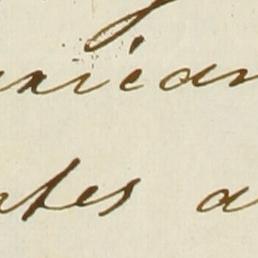 exican
ates a